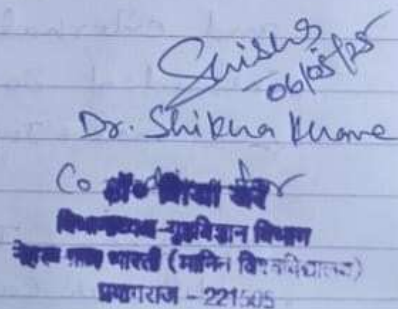 06/05/25
Dr. Shikha Khare
Co
डॉ० शिखा खरे
विभागाध्यक्ष-गृहविज्ञान विभाग
नेहरू ग्राम भारती (मानित विश्वविद्यालय)
प्रयागराज - 221505